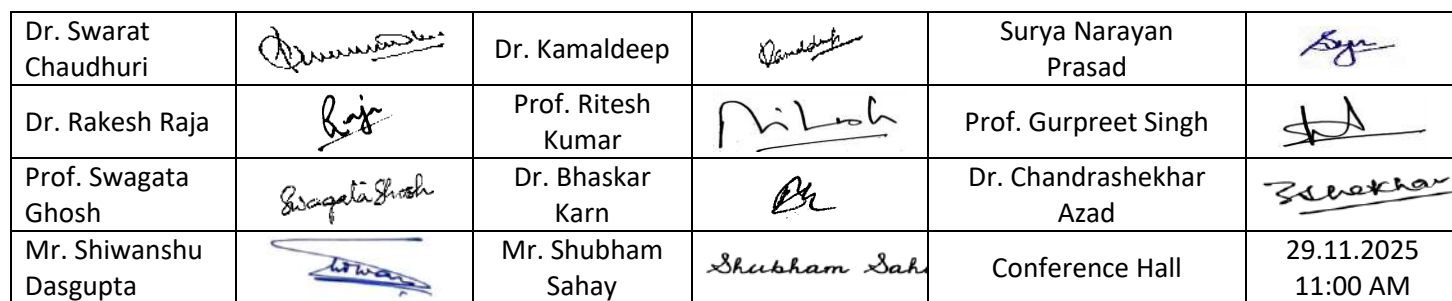 Dr. Swarat
Chaudhuri
Dr. Kamaldeep
Kamaldeep
Surya Narayan
Prasad
Dr. Rakesh Raja
Raja
Prof. Ritesh
Kumar
Ritesh
Prof. Gurpreet Singh
Prof. Swagata
Ghosh
Swagata Ghosh
Dr. Bhaskar
Karn
Dr. Chandrashekhar
Azad
Mr. Shiwanshu
Dasgupta
Mr. Shubham
Sahay
Shubham Sah
Conference Hall
29.11.2025
11:00 AM